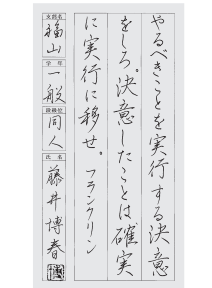 やるべきことを実行する決意
をしろ。決意したことは確実
に実行に移せ。フランクリン
支部名
福山
学年
一般
段級位
同人
氏名
藤井博春